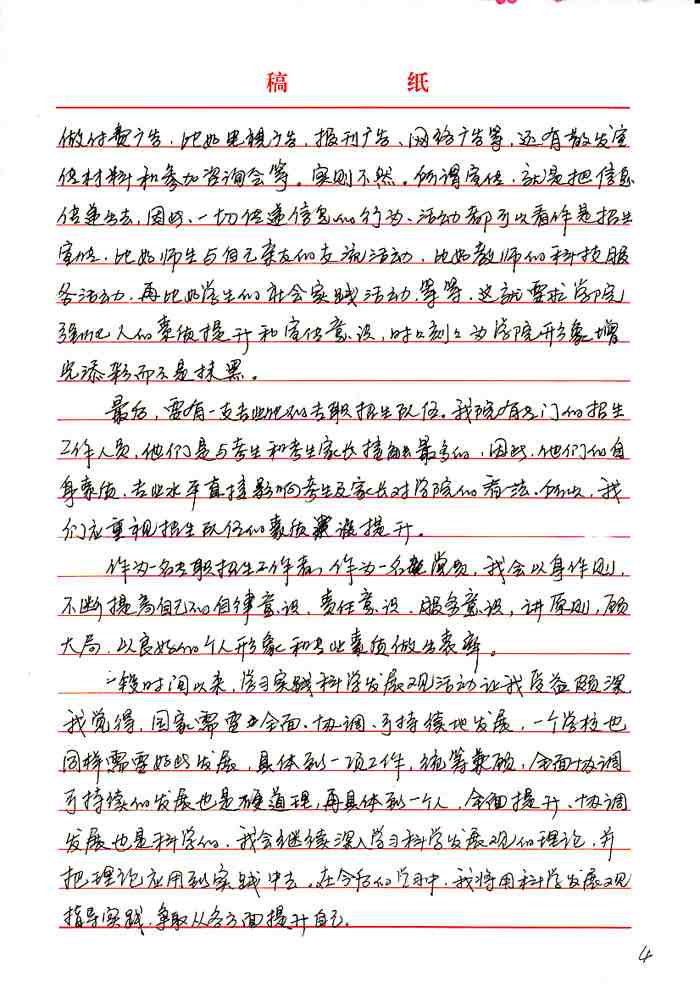 稿 纸
做付费广告，比如电视广告、报刊广告、网络广告等，还有散发宣
传材料和参加咨询会等。实则不然。所谓宣传，就是把信息
传递出去，因此，一切传递信息的行为、活动都可以看作是招生
宣传，比如师生与自己亲友的交流活动，比如教师的科技服
务活动，再比如学生的社会实践活动，等等，这就要求学院
强化人的素质提升和宣传意识，时时刻刻为学院形象增
光添彩而不是抹黑。
最后，要有一支专业化的专职招生队伍。我院有专门的招生
工作人员，他们是与考生和考生家长接触最多的，因此，他们的自
身素质、专业水平直接影响考生及家长对学院的看法。所以，我
们应重视招生队伍的素质提升。
作为一名专职招生工作者，作为一名党员，我会以身作则，
不断提高自己的自律意识、责任意识、服务意识，讲原则，顾
大局，以良好的个人形象和专业素质做出表率。
一段时间以来，学习实践科学发展观活动让我受益颇深，
我觉得，国家需要全面、协调、可持续地发展，一个学校也
同样需要如此发展，具体到一项工作，统筹兼顾，全面协调
可持续的发展也是硬道理，再具体到一个人，全面提升、协调
发展也是科学的，我会继续深入学习科学发展观的理论，并
把理论应用到实践中去，在今后的学习中，我将用科学发展观
指导实践，争取从各方面提升自己。
4